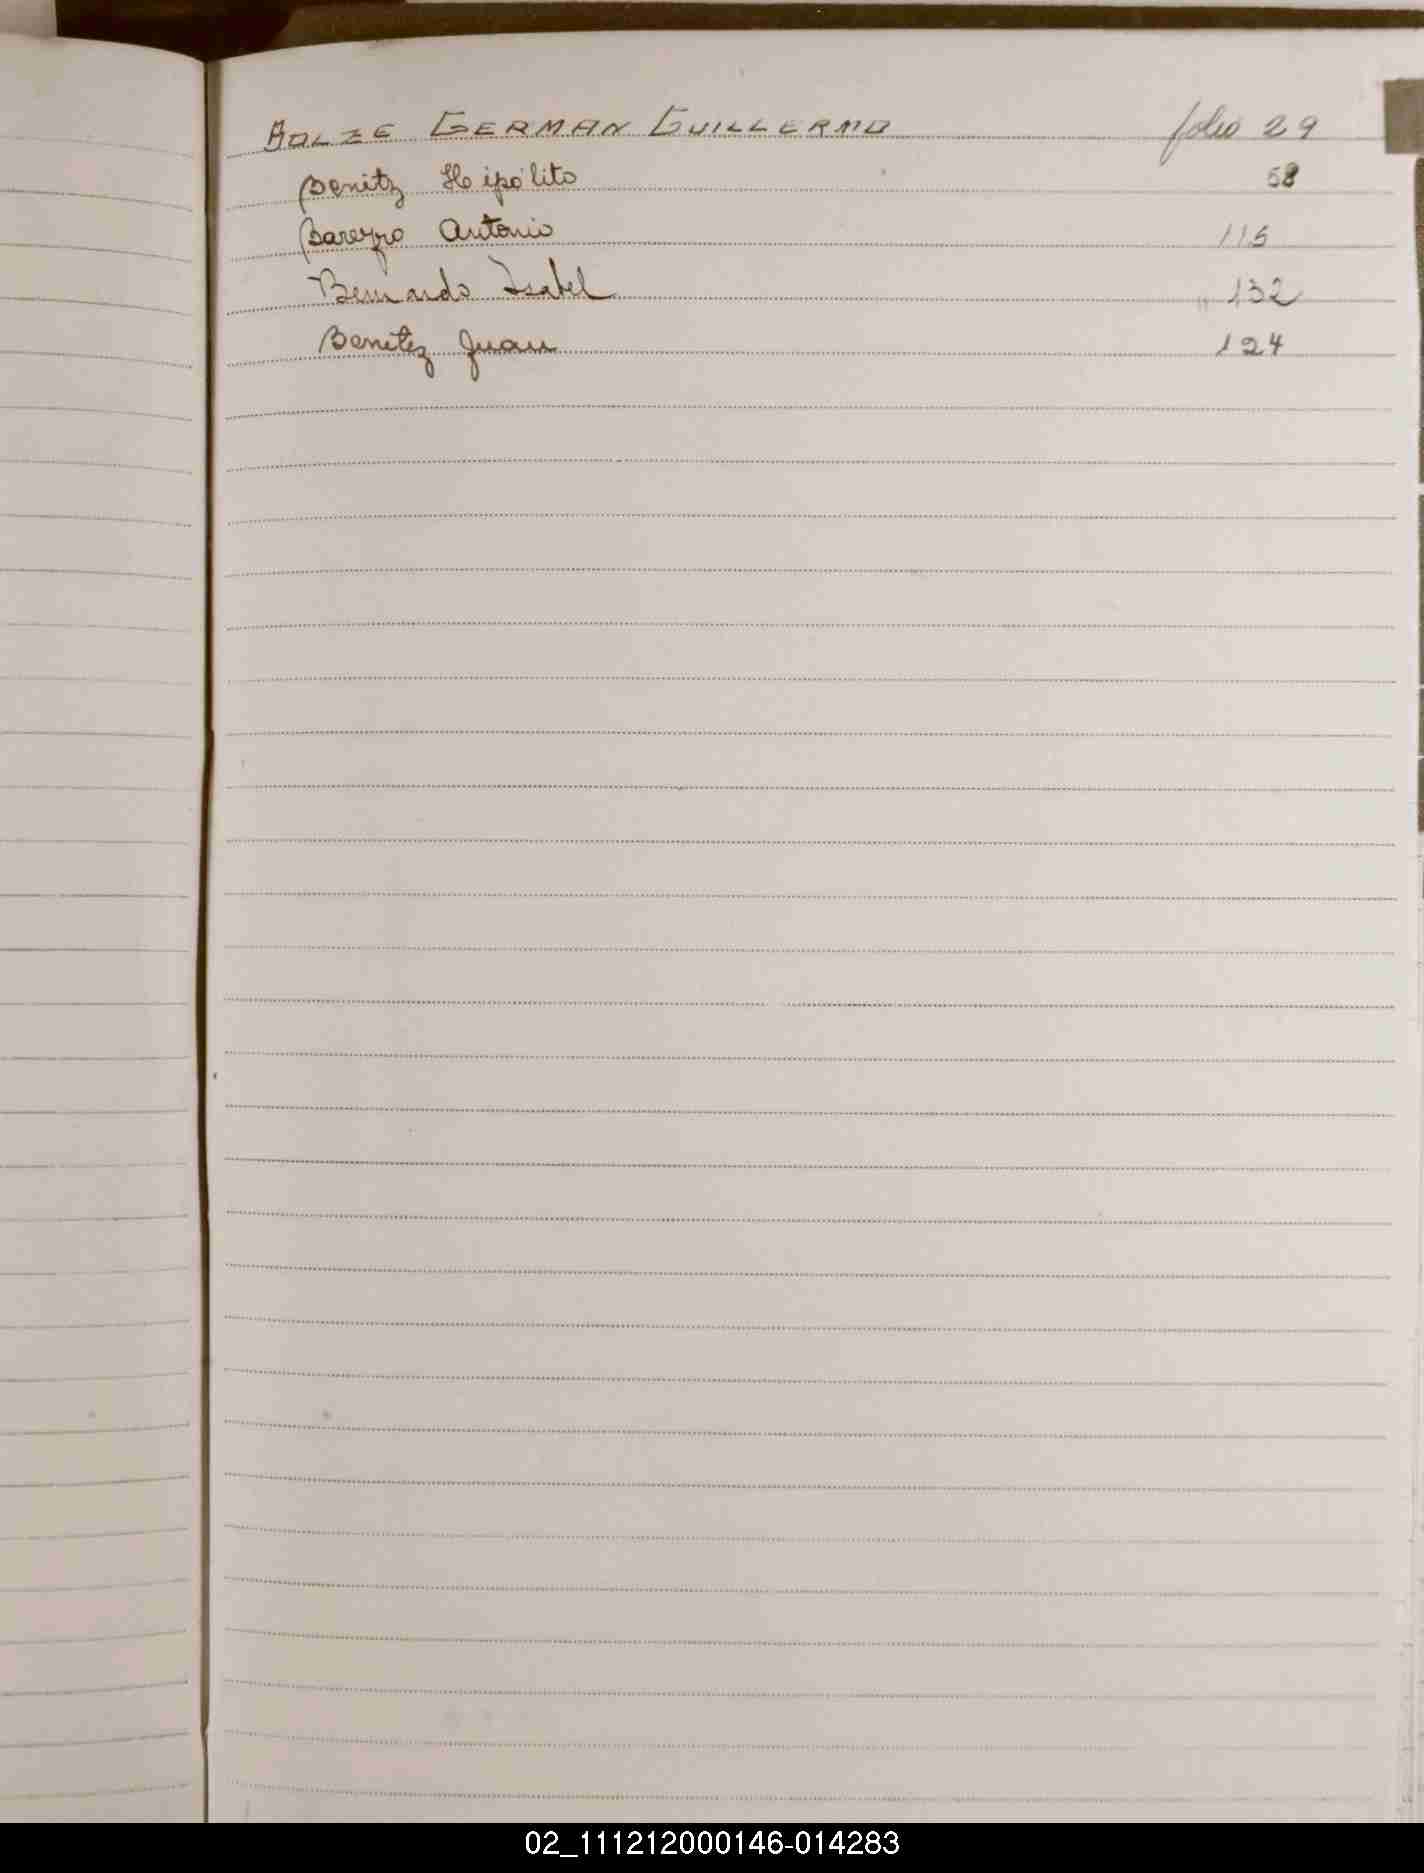 BOLZE GERMAN GUILLERMO folio 29
Benitz Hipólito 58
Antonio 115
Bernardo Isabel " 132
Benitez Juan 124
02_111212000146-014283